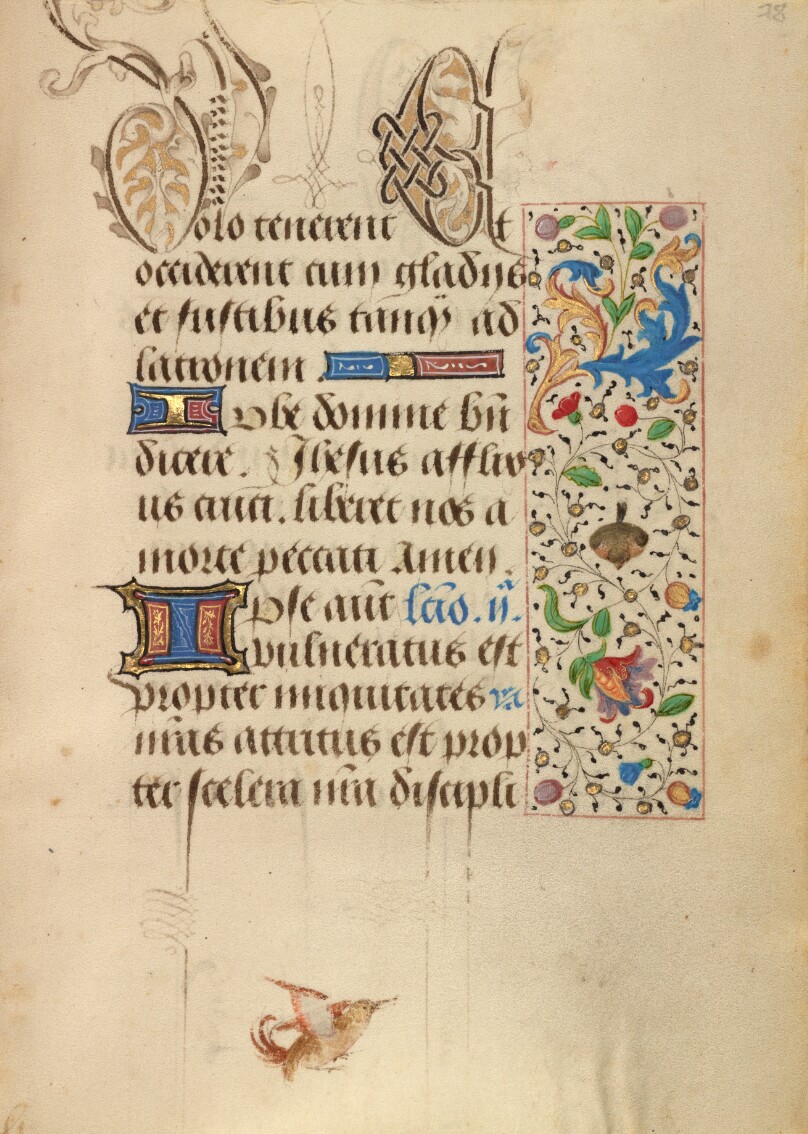 38
dolo tenerent Et
occiderent cum gladijs
et fustibus tanq̃ ad
latronem.
Iube domine bn̄
dicere. Ihesus afflic
us cruci. liberet nos a
morte peccati Amen.
Ipse aut̄ lc̄io. ij.ᵃ
vulneratus est
propter iniquitates
nr̄as attritus est prop
ter scelera nr̄a discipli